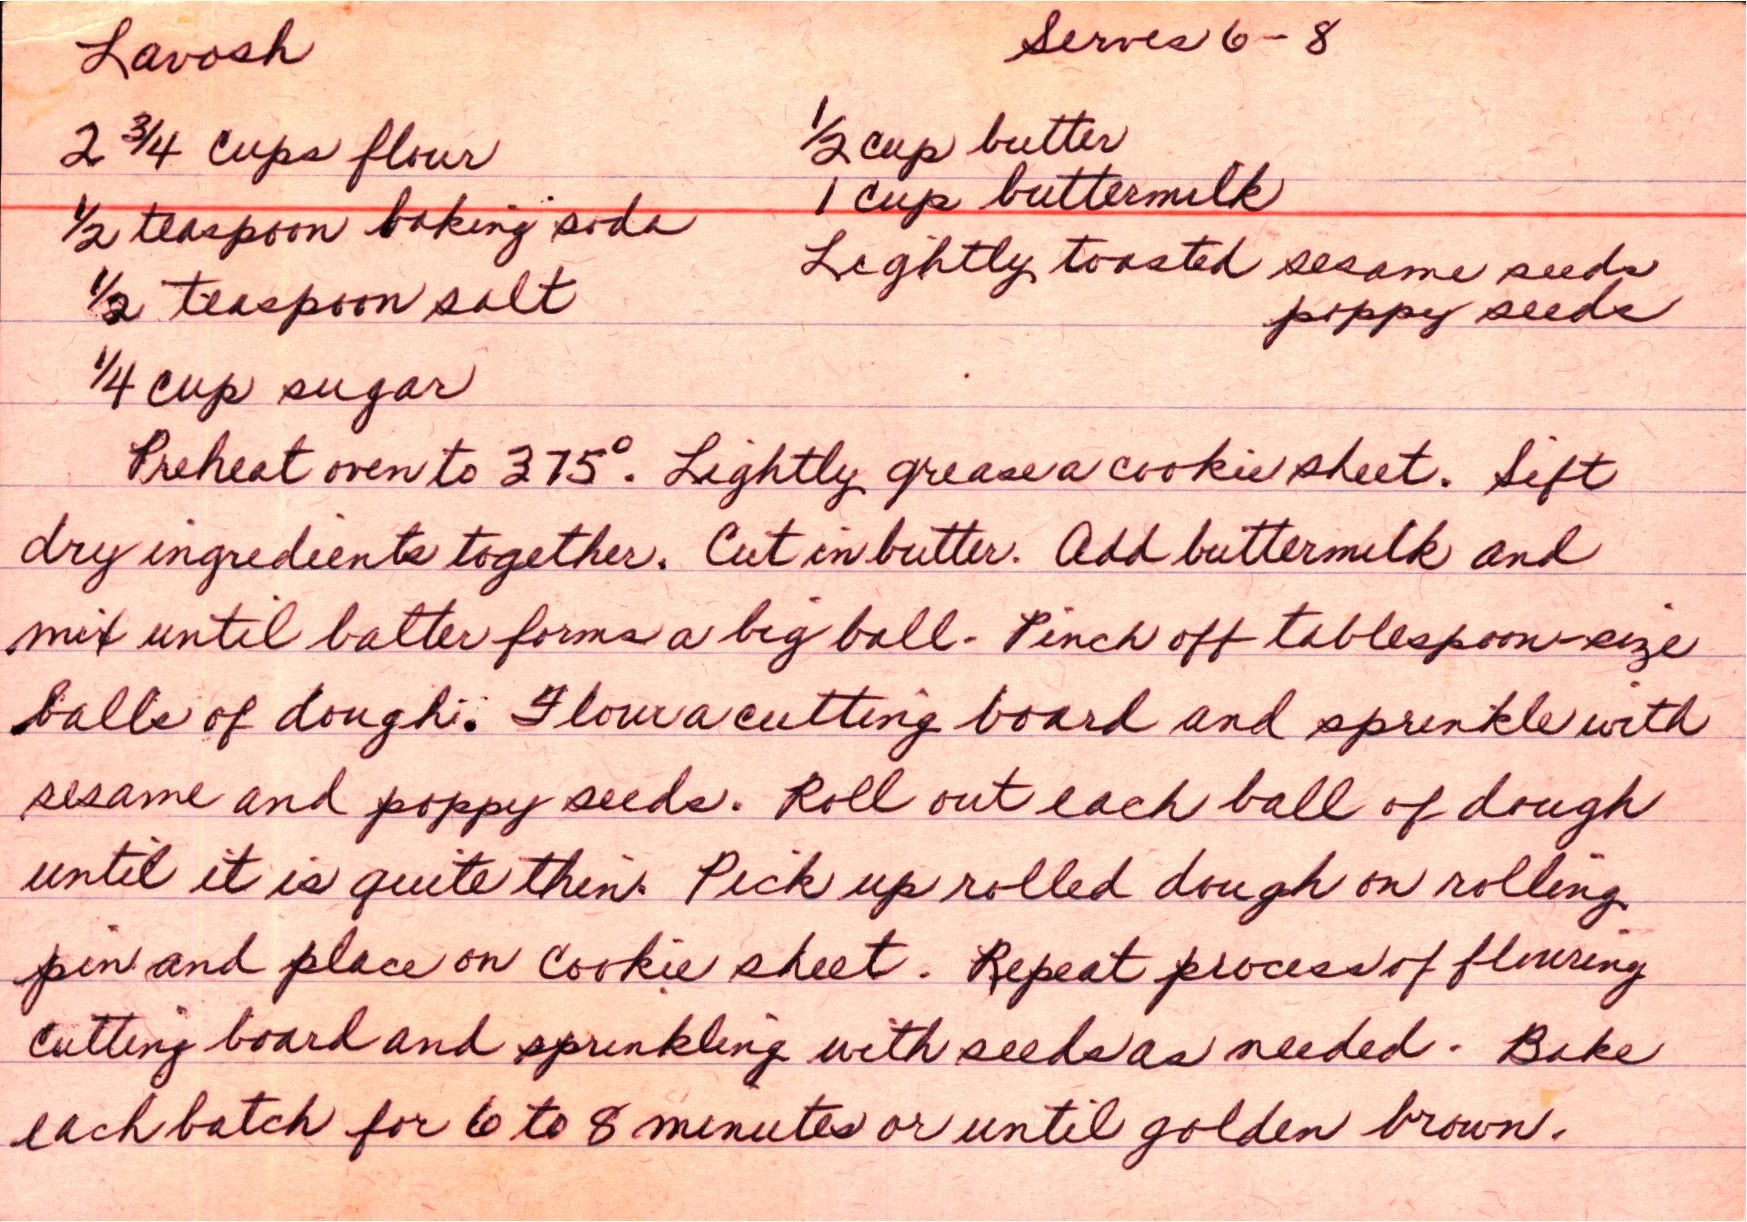 Lavosh
Serves 6-8
2 3/4 cups flour
1/2 teaspoon baking soda
1/2 teaspoon salt
1/4 cup sugar
1/2 cup butter
1 cup buttermilk
Lightly toasted sesame seeds
poppy seeds
Preheat oven to 375°. Lightly grease a cookie sheet. Sift
dry ingredients together. Cut in butter. Add buttermilk and
mix until batter forms a big ball. Pinch off tablespoon-size
balls of dough. Flour a cutting board and sprinkle with
sesame and poppy seeds. Roll out each ball of dough
until it is quite thin. Pick up rolled dough on rolling
pin and place on cookie sheet. Repeat process of flouring
cutting board and sprinkling with seeds as needed. Bake
each batch for 6 to 8 minutes or until golden brown.